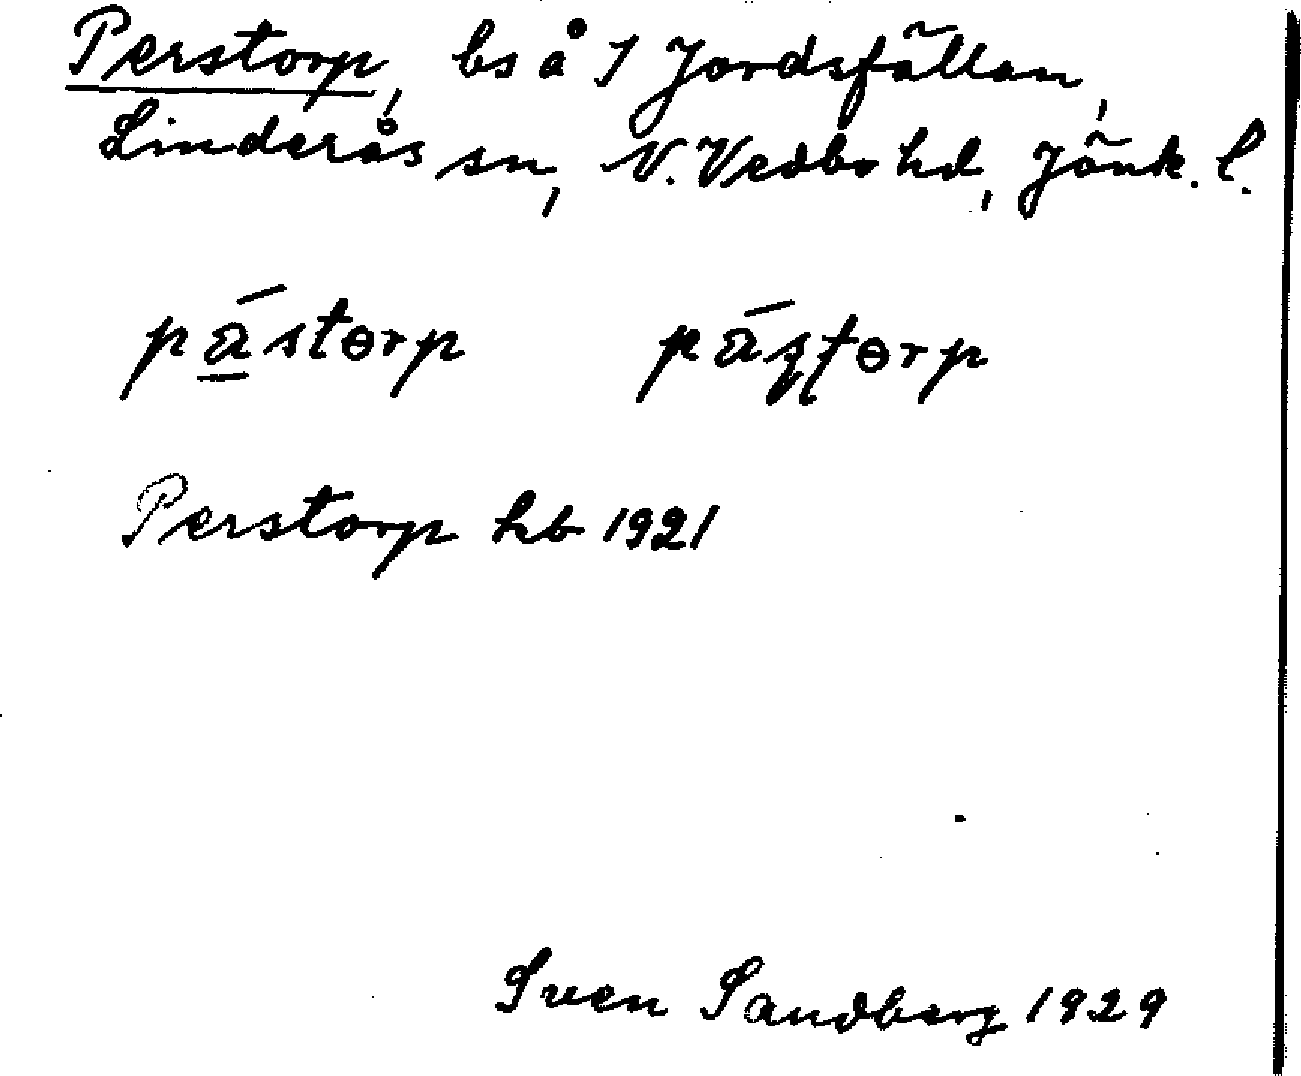 Perstorp, bs å 1 Jordsfällan,
Linderås sn, N. Vedbo hd, Jönk. l.
pa̠̅́storp pāʂʈɵrp
Perstorp hb 1921
Sven Sandberg 1929